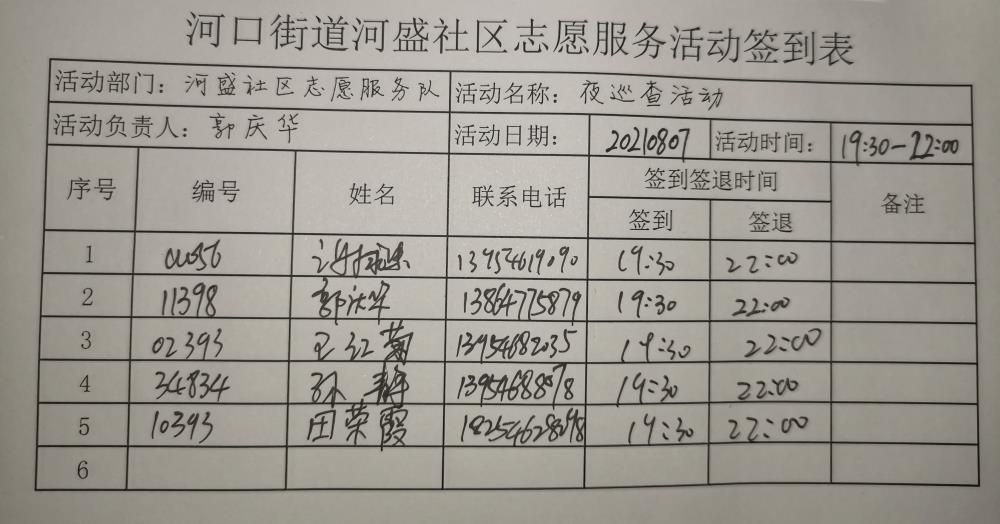 河口街道河盛社区志愿服务活动签到表
活动部门：河盛社区志愿服务队 活动名称：夜巡查活动
活动负责人：郭庆华 活动日期：20210807 活动时间：19:30-22:00
序号 编号 姓名 联系电话 签到签退时间 备注
签到 签退
1 13954619090 19:30 22:00
2 11398 郭庆华 13864775879 19:30 22:00
3 02393 王红菊 13954682035 19:30 22:00
4 34834 孙静 19:30 22:00
5 10393 田荣霞 18254628298 19:30 22:00
6